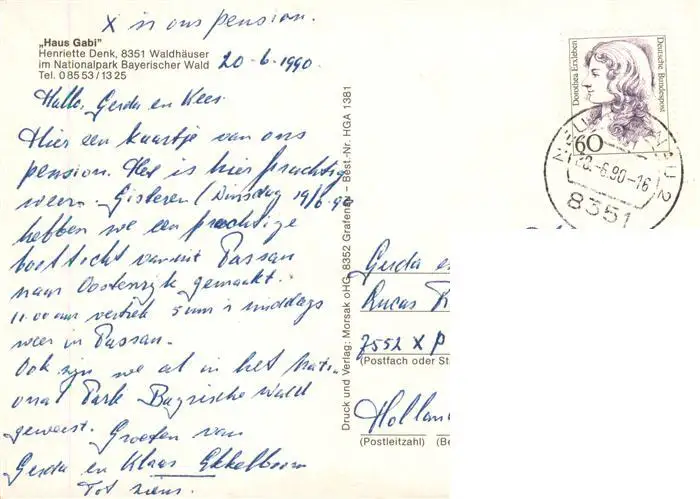 X is ons pension.
„Haus Gabi"
Henriette Denk, 8351 Waldhäuser
im Nationalpark Bayerischer Wald
Tel. 0 85 53/13 25
20-6-1990.
Hallo, Gerda en Kees.
Hier een kaartje van ons
pension. Het is hier prachtig
weer. Gisteren (Dinsdag 19/6-90
hebben we een prachtige
boottocht vanuit Passau
naar Oostenrijk gemaakt.
11.00 uur vertrek 5 uur 's middags
weer in Passau.
Ook zijn we al in het Nati-
onal Park Bayrische Wald
geweest. Groeten van
Gerda en Klaas Ekkelboom
Tot ziens.
Druck und Verlag: Morsak oHG, 8352 Grafenau – Best.-Nr. HGA 1381
Dorothea Erxleben
Deutsche Bundespost
60
20.-6.90-16
8351
2
Gerda e
Lucas
7552 X P
(Postfach oder St
Hollan
(Postleitzahl) (Be